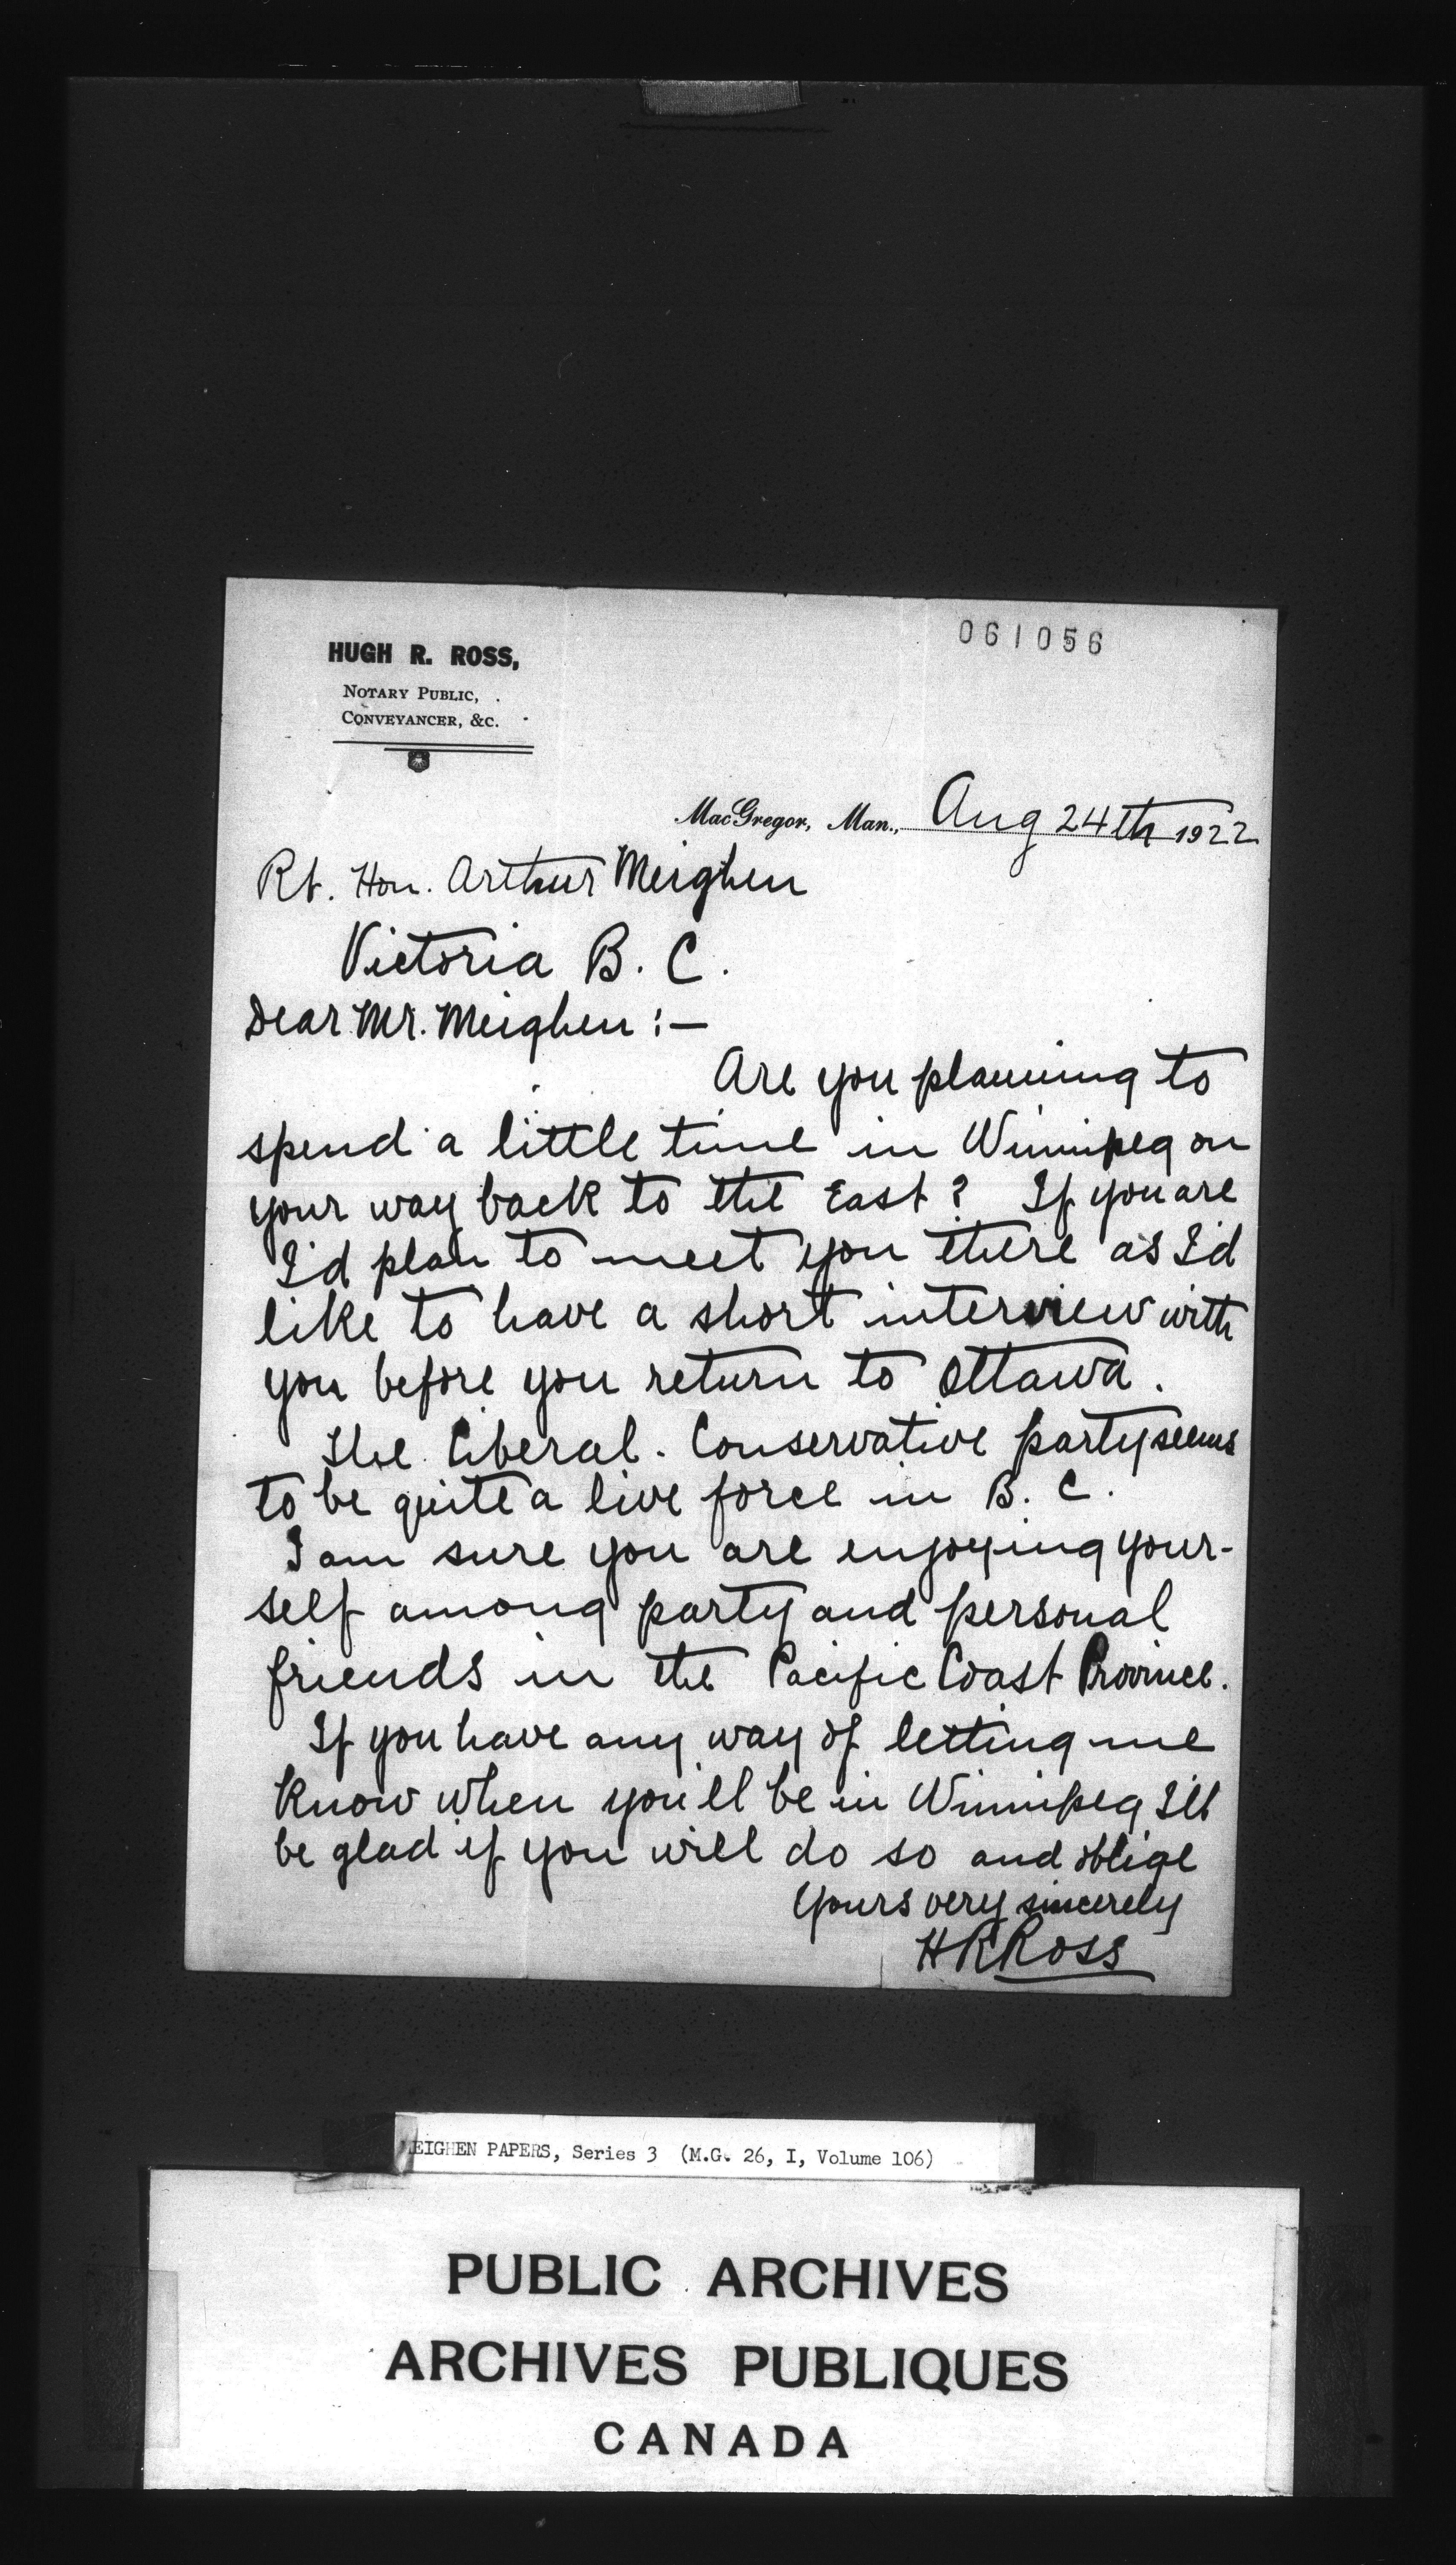 061056
HUGH R. ROSS,
NOTARY PUBLIC,
CONVEYANCER, &C.
MacGregor, Man., Aug 24th 1922
Rt. Hon. Arthur Meighen
Victoria B. C.
Dear Mr. Meighen :—
Are you planning to
spend a little time in Winnipeg on
your way back to the East? If you are
I'd plan to meet you there as I'd
like to have a short interview with
you before you return to Ottawa.
The Liberal-Conservative party seems
to be quite a live force in B. C.
I am sure you are enjoying your-
self among party and personal
friends in the Pacific Coast Province.
If you have any way of letting me
know when you'll be in Winnipeg I'll
be glad if you will do so and oblige
Yours very sincerely
H R Ross
MEIGHEN PAPERS, Series 3 (M.G. 26, I, Volume 106)
PUBLIC ARCHIVES
ARCHIVES PUBLIQUES
CANADA